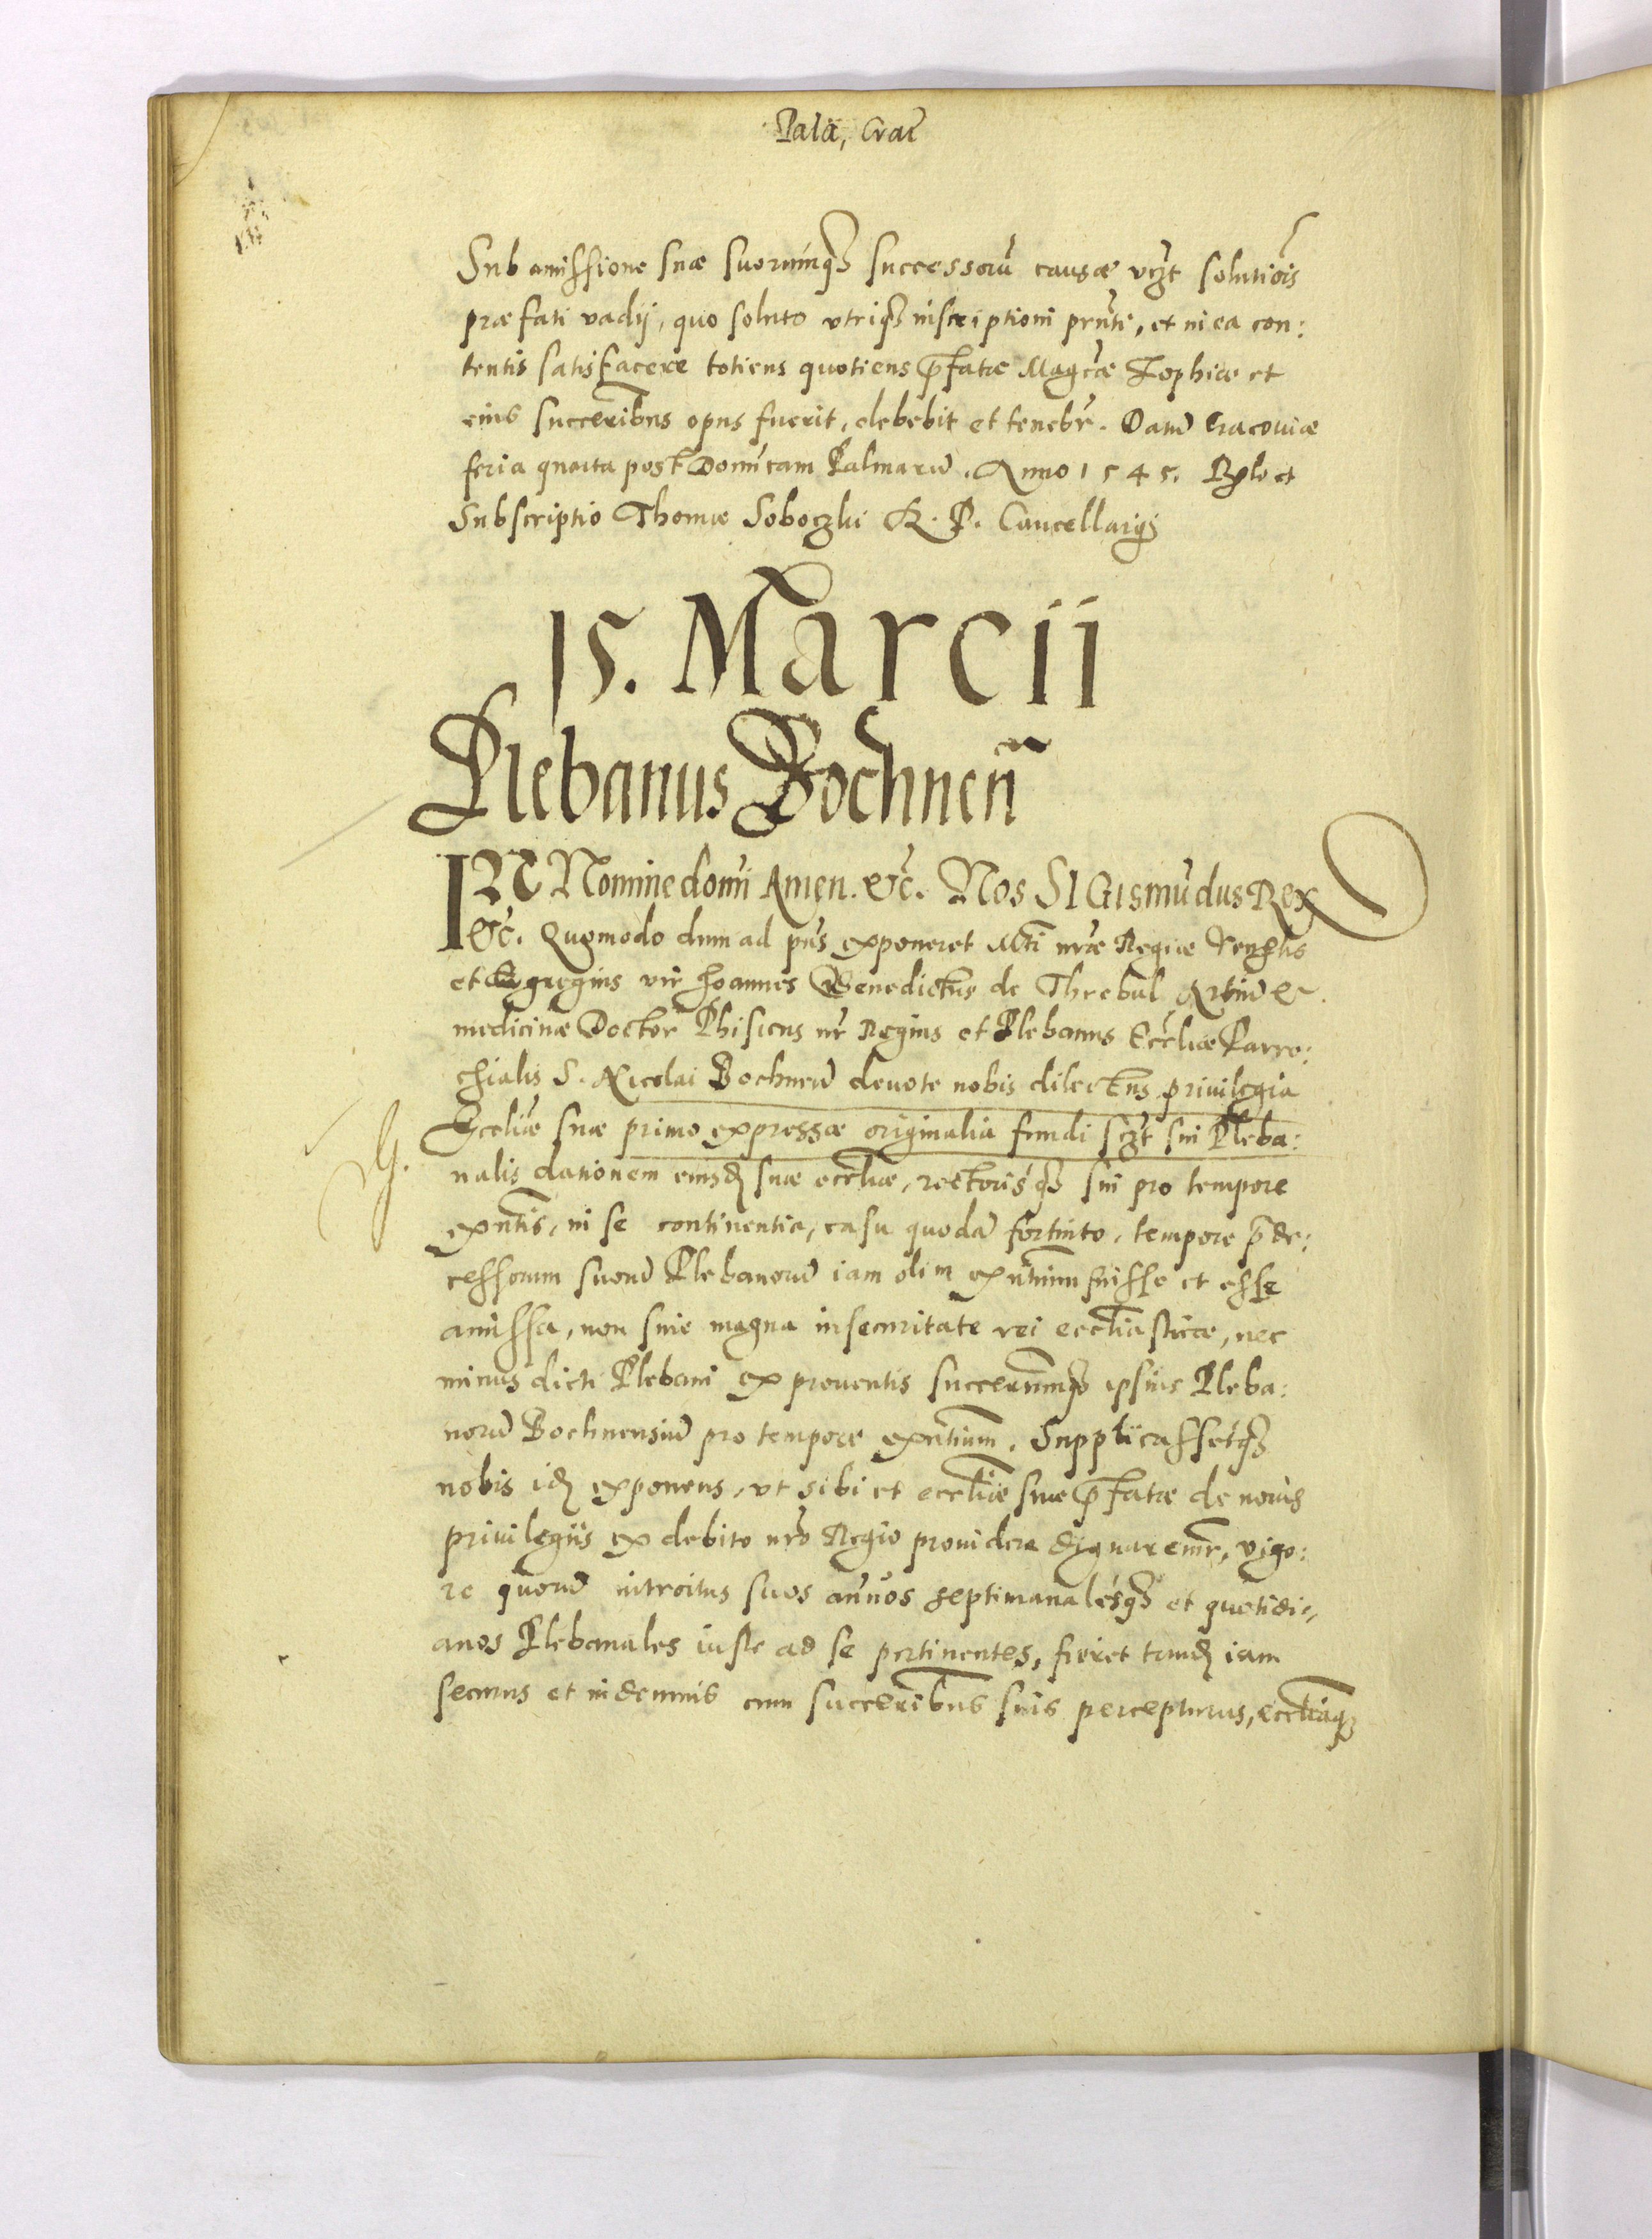 Pala, Crac̃
Sub amissione suæ suorumq₃ successorũ causæ vczt solutiõis
præfati vadij, quo soluto vtriq₃ inscriptioni prñti, et in ea con:
tentis satisfacere totiens quotiens p̃fatæ Magcæ Zophiæ et
eius succeribus opus fuerit, debebit et tenebr̃. Datũ Cracouiæ
feria quarta post Domĩcam Palmarũ. Anno 1545. Rplo et
Subscriptio Thomæ Soboczki R. P. Cancellarij
15. Marcii
Plebanus Bochneñ
IN Nomine domĩ Amen. &c̃. Nos SIGismũdus Rex
&c̃. Quomodo dum ad pñs exponeret Mti nr̃æ Regiæ Venãlis
et Egregius vir Joannes Benedictus de Threbul Artiũ &
medicinæ Doctor Phisicus nr̃ Regius et Plebanus Eccliæ Parro:
chialis S. Nicolai Bochneñ deuote nobis dilectus priuilegia
Eccliæ suæ primo expressæ originalia fundi sczt sui Pleba:
G.
nalis dationem eiusd suæ eccliæ, rectorisq₃ sui pro tempore
exñtis, in se continentia, casu quodã fortuito, tempore p̃de:
cessorum suorũ Plebanorũ iam olim exñtium fuisse et esse
amissa, non sine magna insecuritate rei ecclĩasticæ, nec
minus dicti Plebani ex prouentis succerumq₃ ipsius Pleba:
norũ Bochnensiũ pro tempore exñtium. Supplicassetq₃
nobis id exponens, vt sibi et eccliæ suæ p̃fatæ de nouis
priuilegiis ex debito nr̃o Regio prouidere dignaremr̃, vigo:
re quorũ introitus suos an̄uos septimanalesq₃ et quotidi,,
anos Plebanales iuste ad se pertinentes, fieret tand iam
securus et indemnis cum succeribus suis percepturus, eccliaq₃